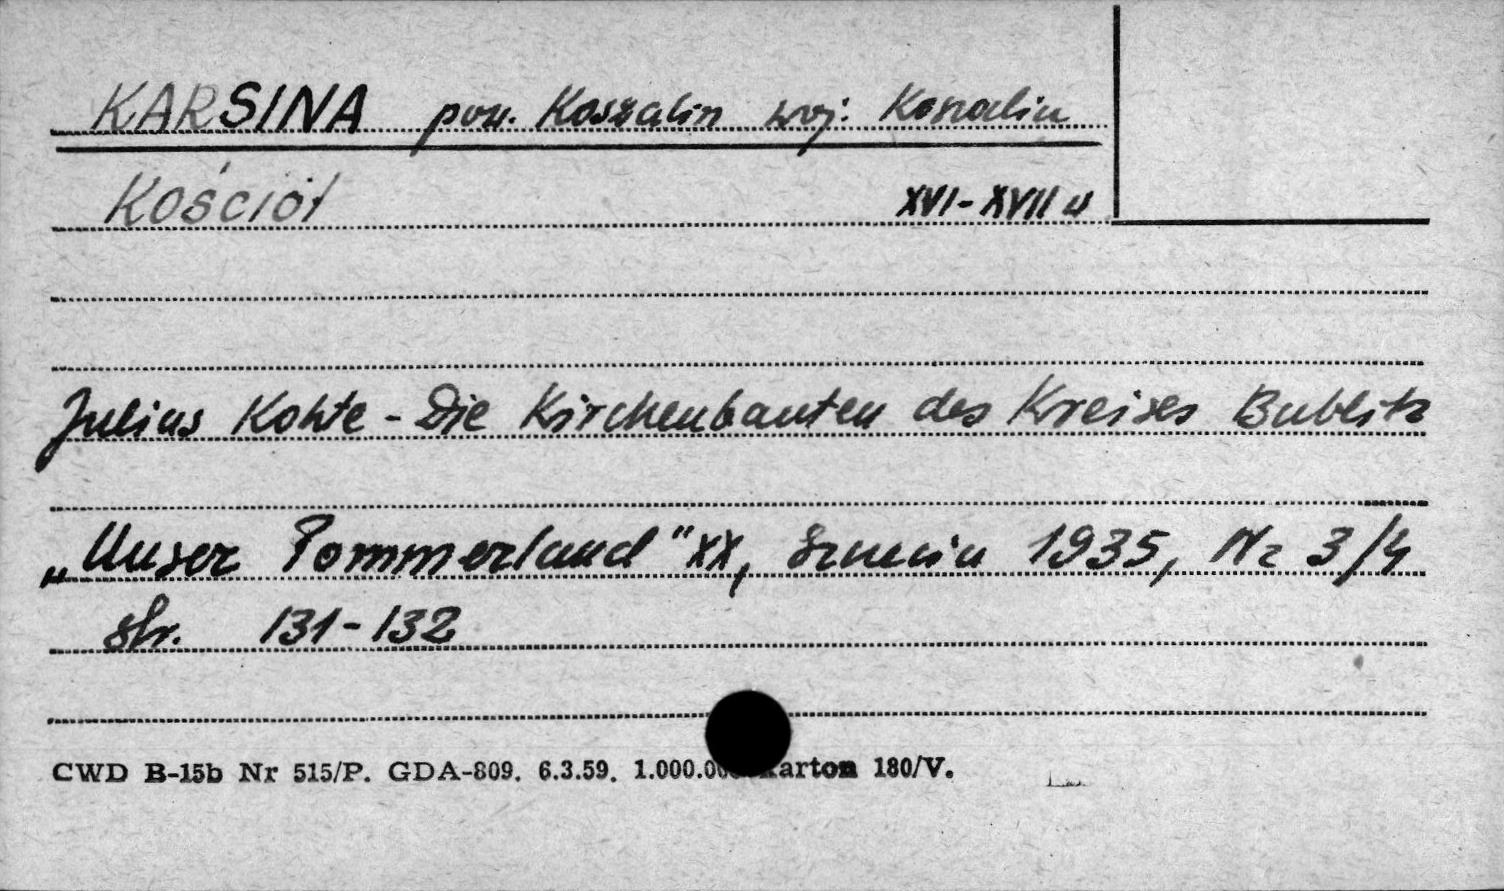 KARSINA pow. Koszalin woj. Koszalin
Kościół XVI-XVII w
Julius Kohte - Die Kirchenbauten des Kreises Bublitz
„Unser Pommerland" XX, Szczecin 1935, Nr 3/4
str. 131-132
CWD B-15b Nr 515/P. GDA-809. 6.3.59. 1.000.000 Karton 180/V.